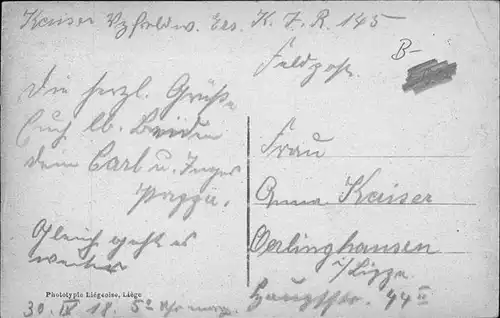 Kaiser Vzfeldw. Ers. K. J. R. 145
Feldpost
B-
Die herzl. Grüße
Euch lb. Beiden
dein Carl u.
Pappa.
Gleich geht es
weiter
Frau
Anna Kaiser
Oerlinghausen
i/Lippe
Hauptstr. 44 II
Phototypie Liégeoise, Liége
30. IX 18. 5° Uhr morg.